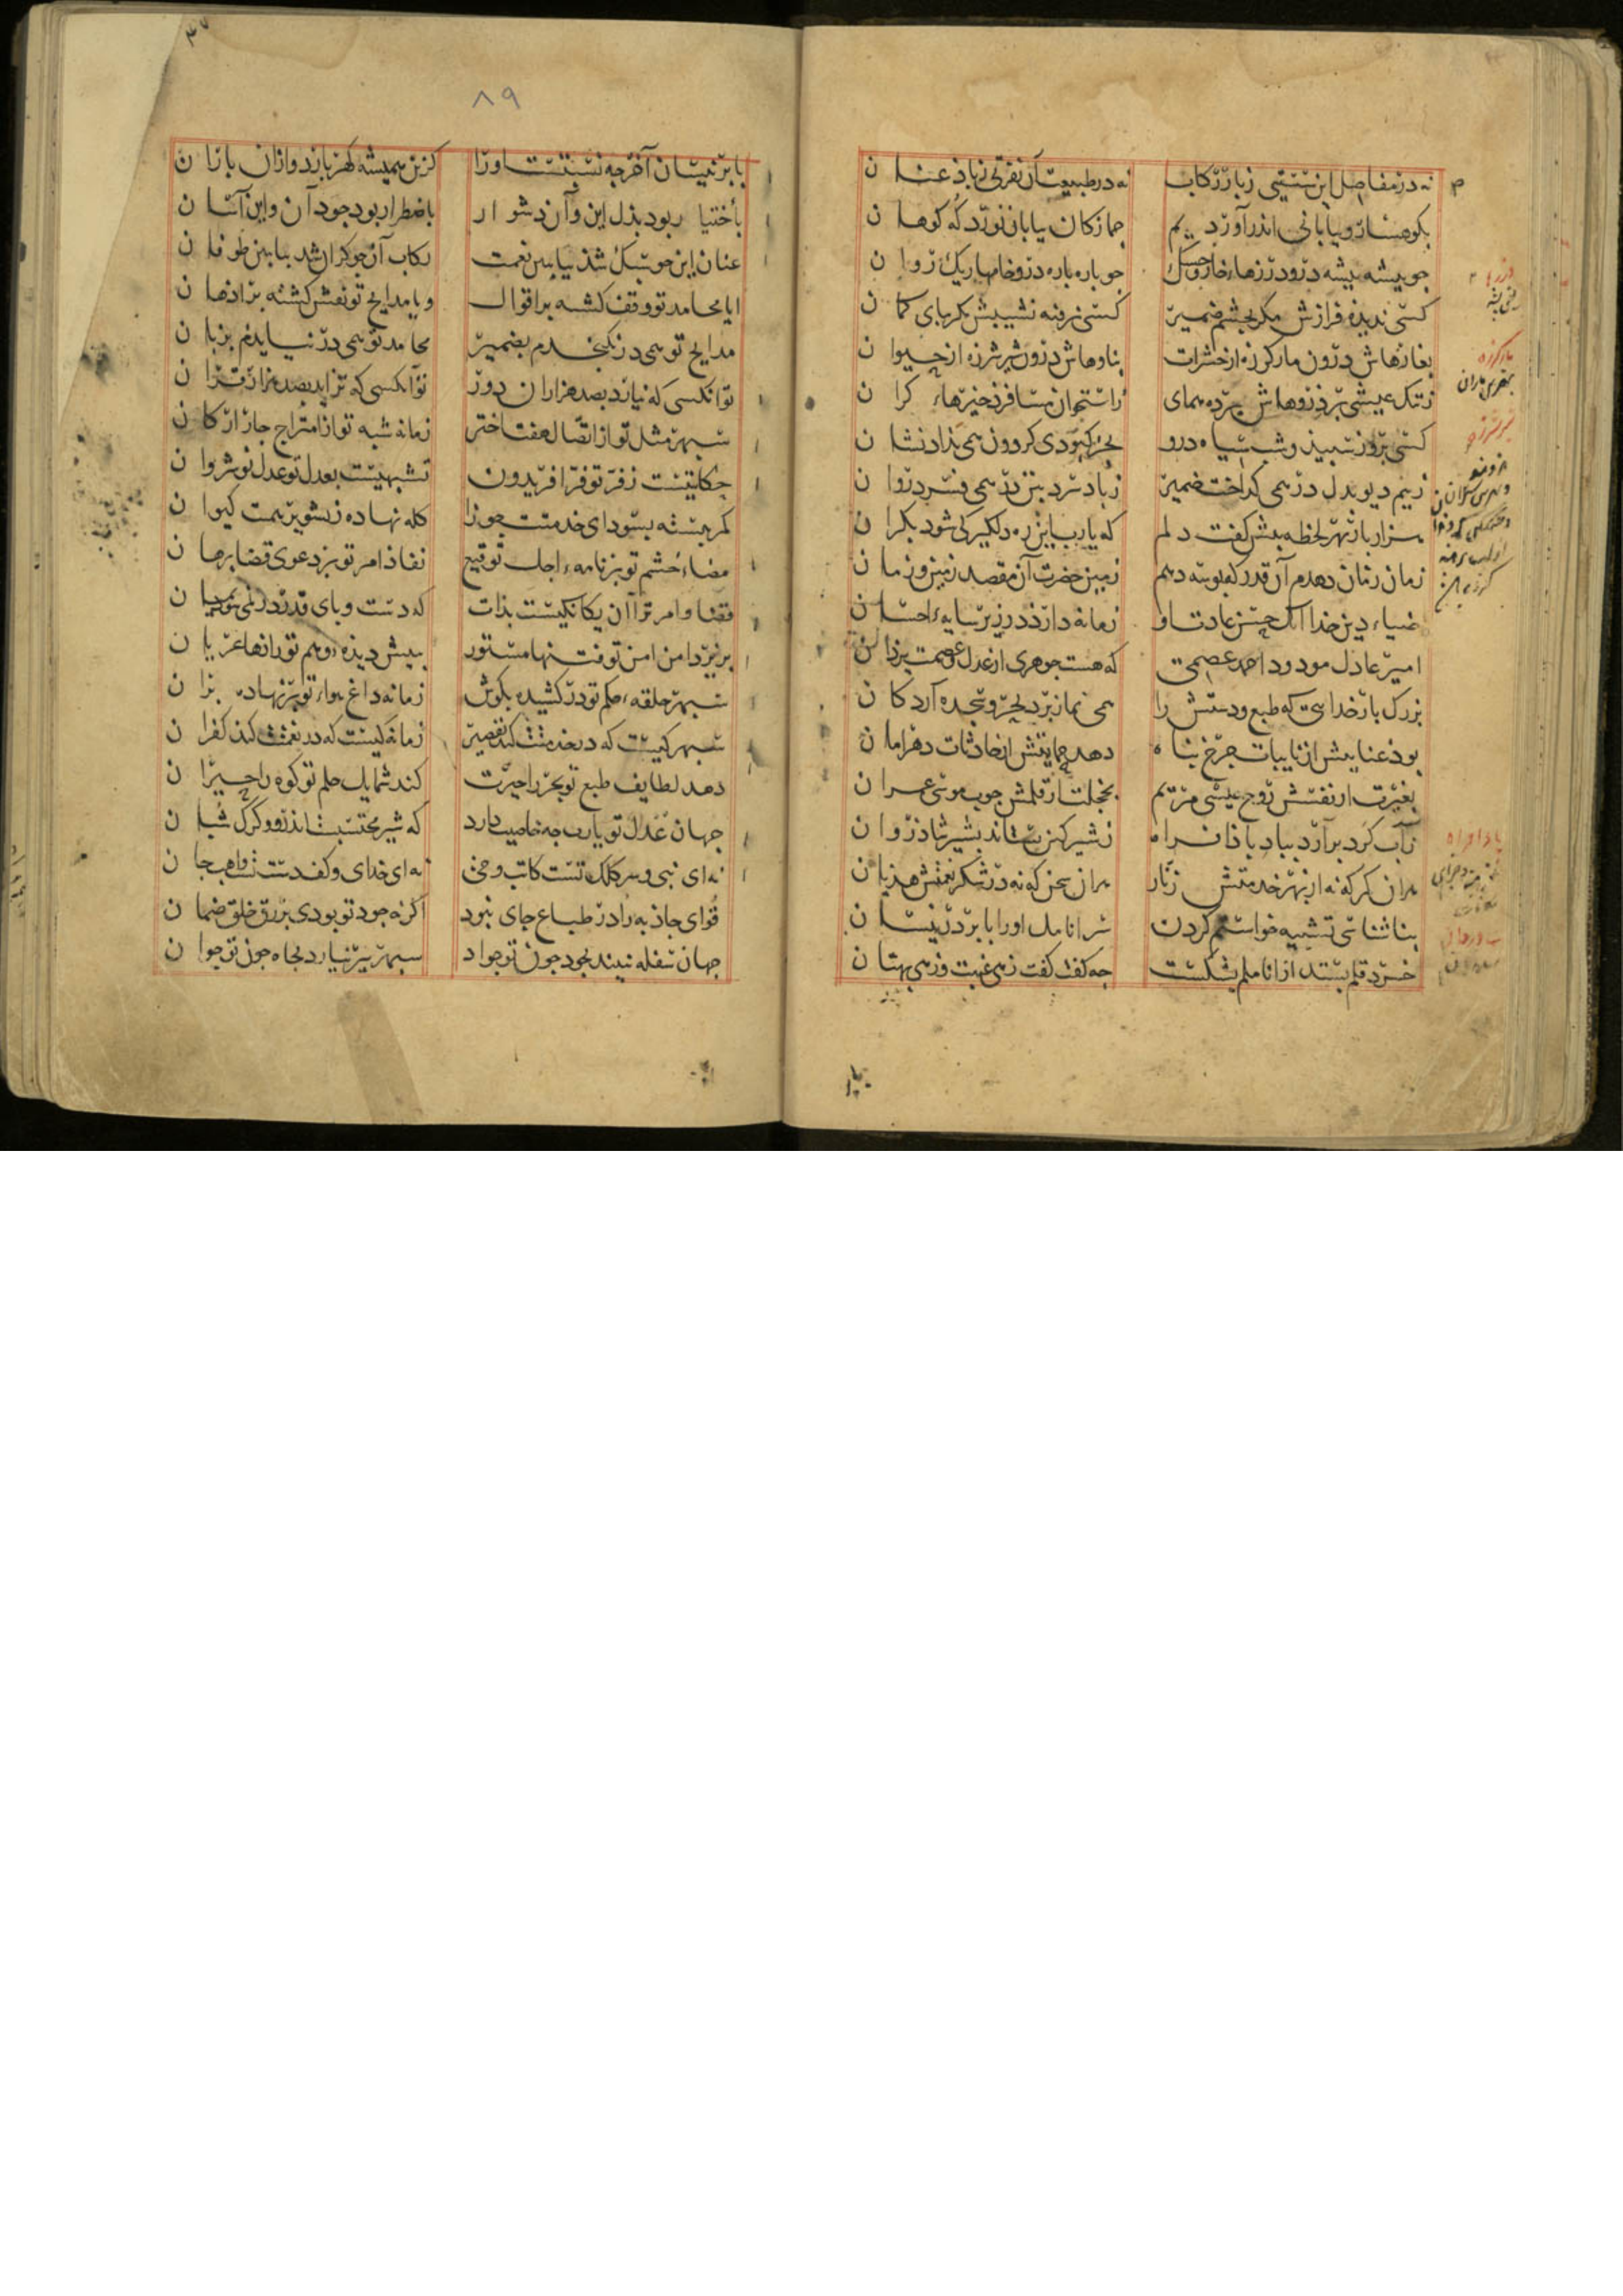 نه در مفاصل این سستیی ز بار رکاب نه در طبیعت آن نفرتی ز باد عنان
بکوهسار و بیابانی اندر آوردیم جمازکان بیابان نورد که کوهان
چو بیشه بیشه درو درزهاء خار و خسک چو باره باره درو خامهاء ریک روان
کسی ندیده فرازش مکر بچشم ضمیر کسی نرفته نشیبش مکر بپای کمان
بغارهاش درون مار کرزه از حشرات بناوهاش درون شیر شرزه از حیوان
ز تنک عیشی بر ذروهاش برده همای ز استخوان مسافر ذخیرهاء کران
کسی بروز سپید و شب سیاه درو بجز کبودی کردون همی نداد نشان
ز بیم دیو بدل در همی کداخت ضمیر ز باد سرد بتن در همی فسرد روان
هزار بار بهر لحظه بیش کفت دلم که یارب این ره دلکیر کی شود بکران
زمان زمان دهدم آن قدر که بوسه دهم زمین حضرت آن مقصد زمین و زمان
ضیاء دین خدا آنک حسن عادت او زمانه دارد در زیر سایهء احسان
امیر عادل مودود احمد عصمی که هست جوهری از عدل و عصمت یزدان
بزرک بار خدائی که طبع و دستش را همی نماز برد بحر و سجده آرد کان
بود عنایتش از نایبات چرخ پناه دهد حمایتش از حادثات دهر امان
بغیرت از نفسش روح عیسی مریم بخجلت از قلمش چوب موسی عمران
ز آب کرد برآرد بباد بادافراه ز شیر کین بستاند بشیر شادروان
بران کمر که نه از بهر خدمتش زنار بران سخن که نه در شکر نعمتش هذیان
بناشناسی تشبیه خواستم کردن سر انامل او را بابر در نیسان
خرد قلم بستد از اناملم بشکست چه کفت کفت زهی غیبت و زهی بهتان
۸۹
بابر نیسان آخر چه نسبتست او را کزین همیشه کهر بارد و ازان باران
باختیار بود بذل این و آن دشوار باضطرار بود جود آن و این آسان
عنان این چو سبک شد بیابس نعمت رکاب آن چو کران شد بیابس طوفان
ایا محامد تو وقف کشته بر اقوال و یا مدایح تو نقش کشته بر اذهان
مدایح تو همی در نکنجدم بضمیر محامد تو همی در نیایدم بزبان
تو آنکسی که نیارد بصد هزاران دور تو آنکسی که نزاید بصد هزار قران
سپهر مثل تو از اتصال هفت اختر زمانه شبه تو از امتزاج چار ارکان
حکایتیست ز فر تو فر افریدون تشبهیست بعدل تو عدل نوشروان
کمر ببسته بسودای خدمتت جوزا کله نهاده ز تشویر همتت کیوان
مضاء خشم تو بر نامهء اجل توقیع نفاذ امر تو بر دعوی قضا برهان
قضا و امر ترا آن یکانکیست بذات که دست و پای قدر در نمی شود بمیان
بزیر دامن امن تو فتنها مستور بپیش دیدهء وهم تو رازها عریان
سپهر حلقهء حکم تو در کشیده بکوش زمانه داغ هواء تو بر نهاده بران
سپهر کیست که در خدمتت کند تقصیر زمانه کیست که در نعمتت کند کفران
دهد لطایف طبع تو بحر را حیرت کند شمایل حلم تو کوه را حیران
جهان عدل تو یارب چه خاصیت دارد که شیر محتسبست اندرو و کرک شبان
نه ای نبی و سر کلک تست کاتب وحی نه ای خدای و کف دست تست واهب جان
قوای جاذبه را در طباع جای نبود اکر نه جود تو بودی برزق خلق ضمان
جهان سفله نبیند بجود چون تو جواد سپهر پیر نیارد بجاه چون تو جوان